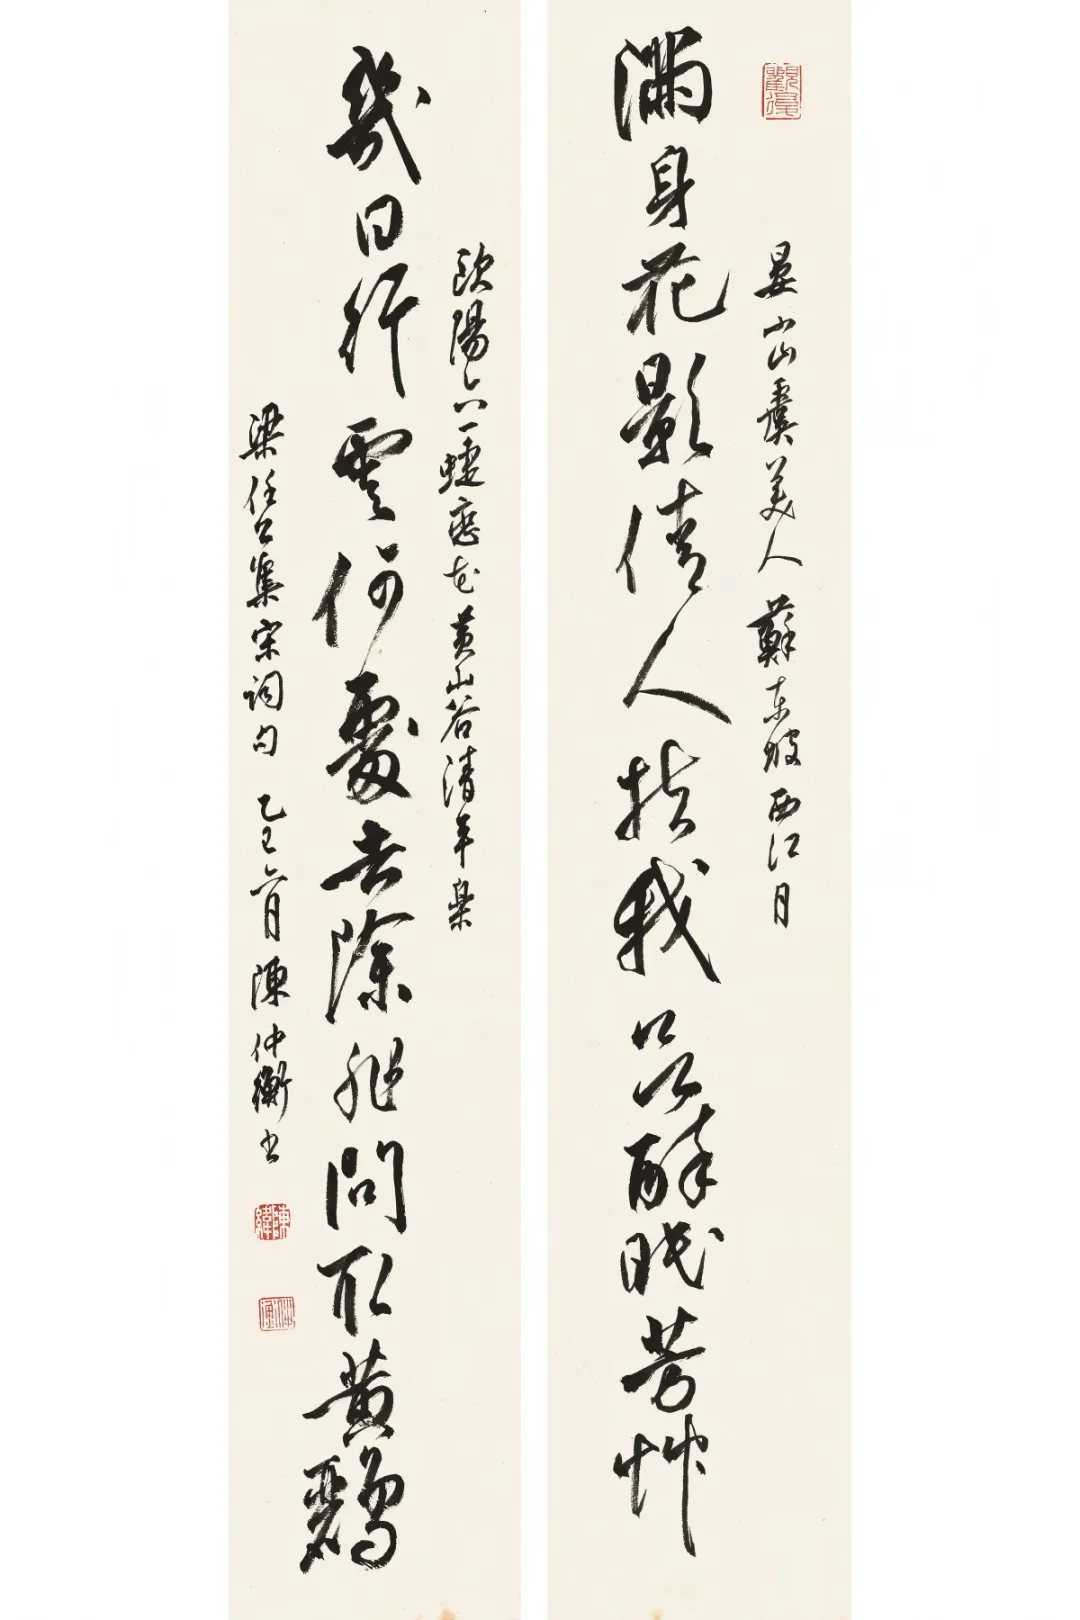 晏小山虞美人 蘇東坡西江月
滿身花影倩人扶我欲醉眠芳艸
歐陽六一蝶戀花 黃山谷清平樂
幾日行雲何處去除非問取黃鸝
梁任公集宋詞句 乙巳六月 陳仲衡書